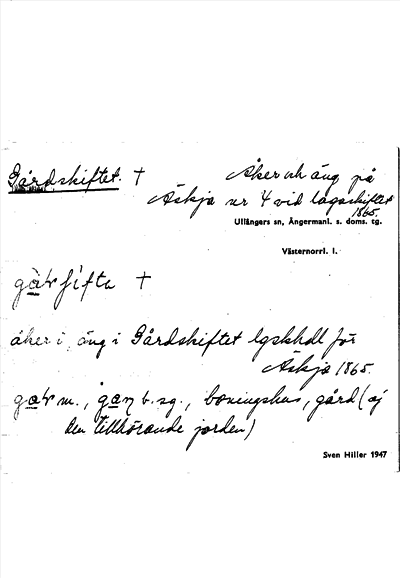 Gårdskiftet. †
Åker och äng på
Äskja nr 4 vid lagaskiftet
1865.
Ullångers sn, Ångermanl. s. doms. tg.
Västernorrl. l.
†
åker i, äng i Gårdskiftet lgskhdl för
Äskja 1865.
m., b. sg., boningshus, gård (ej
den tillhörande jorden)
Sven Hiller 1947